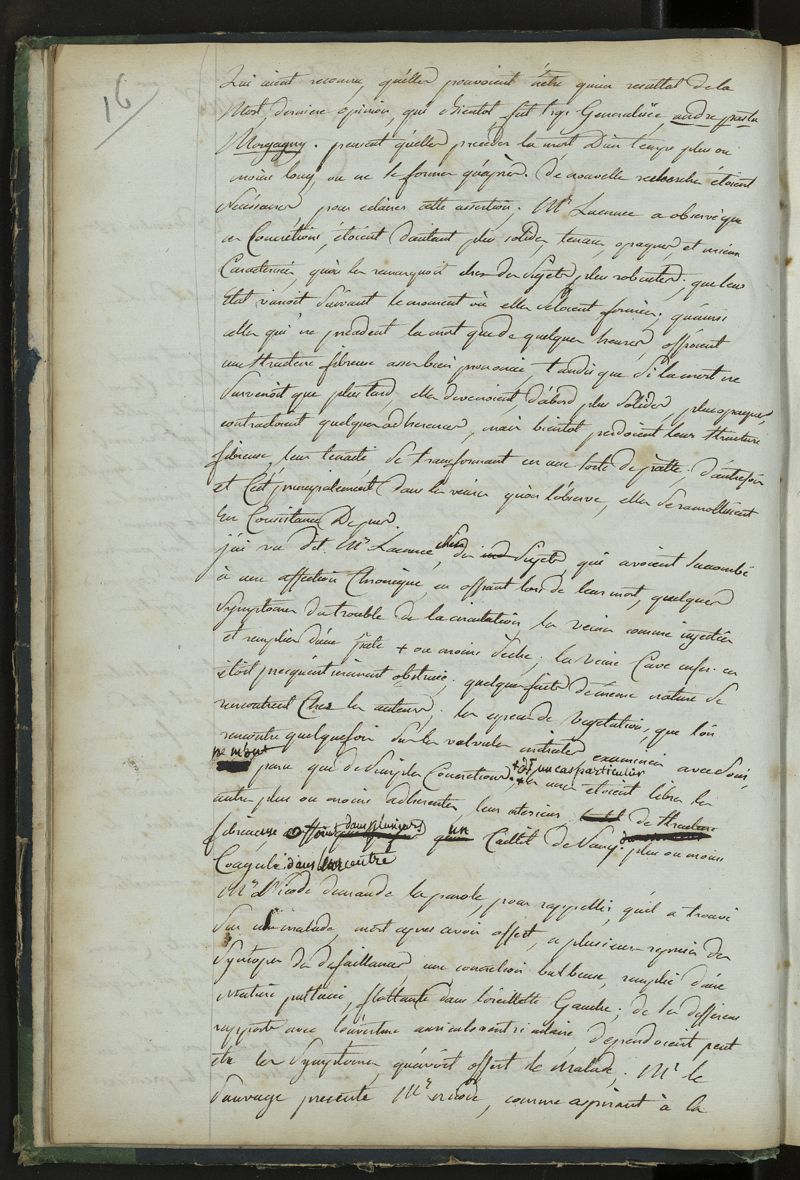 16
Qui aient reconnu, qu'elles pouvoient être qu'un resultat de la
Mort, derniere opinion, qui bientot fut trop Generalisée,
Morgagny. pensent qu'elles preceder la mort d'un temps plus ou
moins long, ou ne se former qu'après. De nouvelle recherche étoient
Necessaires pour eclairer cette assertion. Mr Laennec a observé que
ces Concrétions, étoient d'autant plus solides, tenaces, opaques, et mieux
Caracterisées, qu'on les remarquoit chez des Sujets plus robustes; que leur
Etat varioit suivant le moment où elles s'étoient formées; qu'ainsi
celles qui ne précedent la mort que de quelques heures, offroient
une structure fibreuse assez bien prononcée, tandis que si la mort ne
Survenoit que plus tard, elles devenoient, d'abord plus solides, plus opaques,
contractoient quelques adherences, mais bientot perdoient leur structure
fibreuse, leur tenacité se transformant en une sorte de patte; d'autrefois
et C'est principalement dans les veines qu'on l'observe, elles se ramollissent
En Consistance De pus.
j'ai vu dit Mr Laennec, chez des Sujets, qui avoient succombé
à une affection Chronique, en offrant lors de leur mort, quelques
Symptomes du trouble de la circulation, les veines comme injectées
et remplies d'une patte + ou moins séche; la Veine Cave infer. en
étoit presqu'entierement obstruée; quelques faits de même nature se
rencontrent Chez les auteurs. les especes de Vegetation, que l'on
rencontre quelquefois sur les valvules mitrales examinées avec soin,
ne m'ont paru que de simples Concretions, + d'un cas particulier les unes étoient libres les
autres plus ou moins adherentes, leur interieur de structure
fibreuse dans plusieurs un Caillot de sang plus ou moins
Coagulé. dans leur centre
Mr demande la parole, pour rappeller, qu'il a trouvé
Sur un malade, mort apres avoir offert, a plusieurs reprises des
Syncopes des defaillances une concretion bulbeuse, remplie d'une
Matiere pultacée, flottante dans l'oreillette Gauche; de les differens
rapports avec l'ouverture auriculo ventriculaire, dependoient peut
etre les Symptomes, qu'avoit offert le Malade. Mr le
Sauvage presente Mr, comme aspirant à la